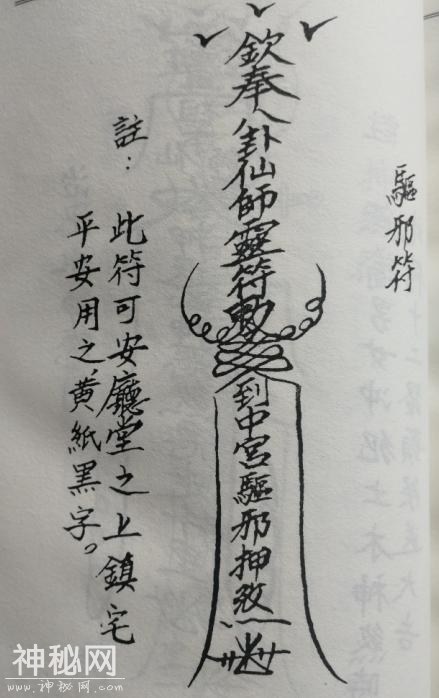 驅邪符
欽奉八卦仙師靈符敕
到中宮驅邪押煞
註：此符可安廳堂之上鎮宅
平安用之，黄紙黑字。
神秘网
www.shenmiw.com